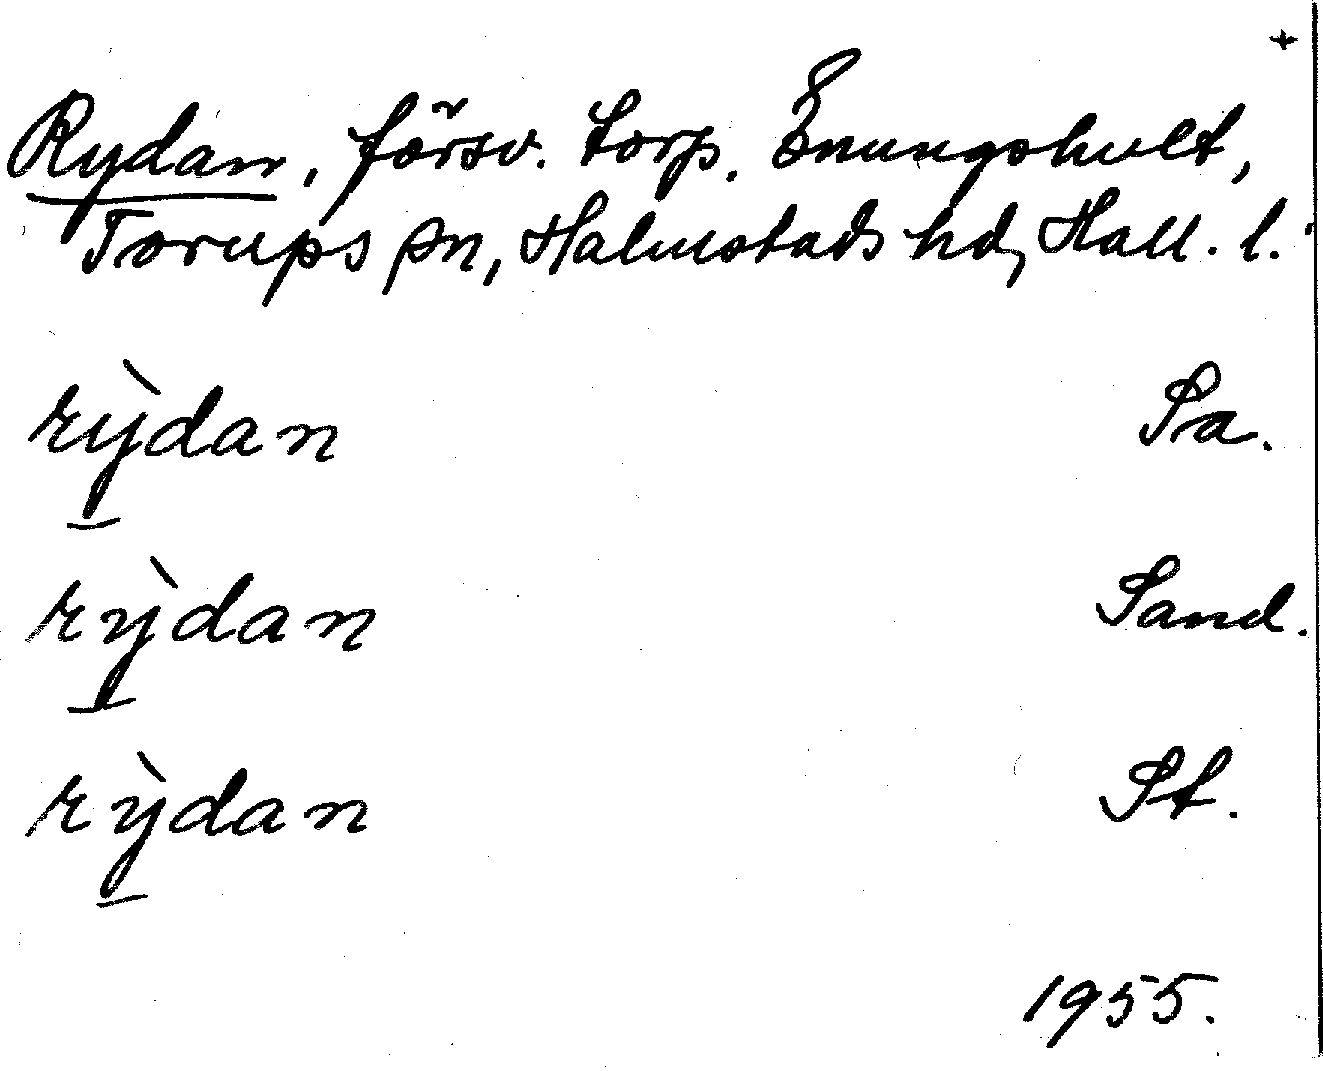 +
Rydan, försv. torp.
Torups sn, Halmstads hd, Hall. l.
rỳdan Sa.
rỳdan Sand.
rỳdan St.
1955.